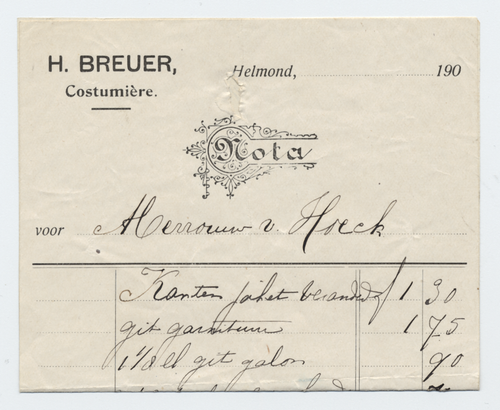 H. BREUER,
Costumière.
Helmond, 190
Nota
voor Merrouw v. Hoeck
Kanten jaket veranderd 1 30
git garnituur 1 75
1 1/8 el git galon 90